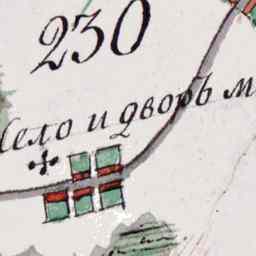 230
Село и дворъ